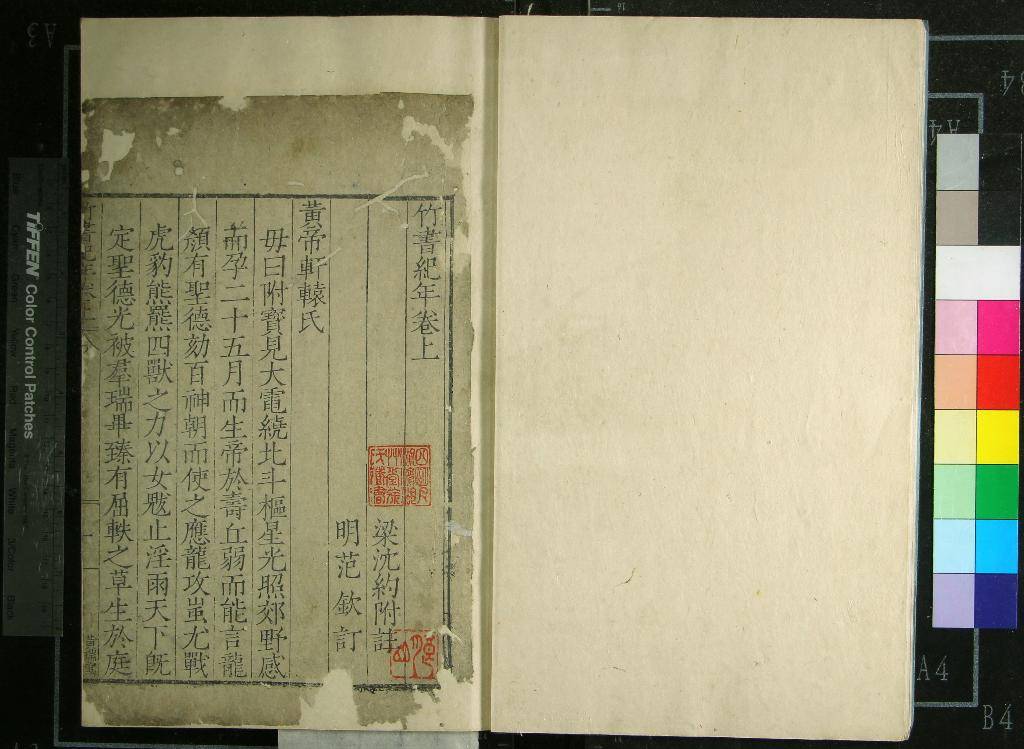 竹書紀年卷上
梁沈約附註
明范欽訂
黃帝軒轅氏
母曰附寶見大電繞北斗樞星光照郊野感
而孕二十五月而生帝於壽丘弱而能言龍
顏有聖德劾百神朝而使之應龍攻蚩尤戰
虎豹熊羆四獸之力以女魃止淫雨天下既
定聖德光被羣瑞畢臻有屈軼之草生於庭
TIFFEN Color Control Patches
A4
B4
A3
A4